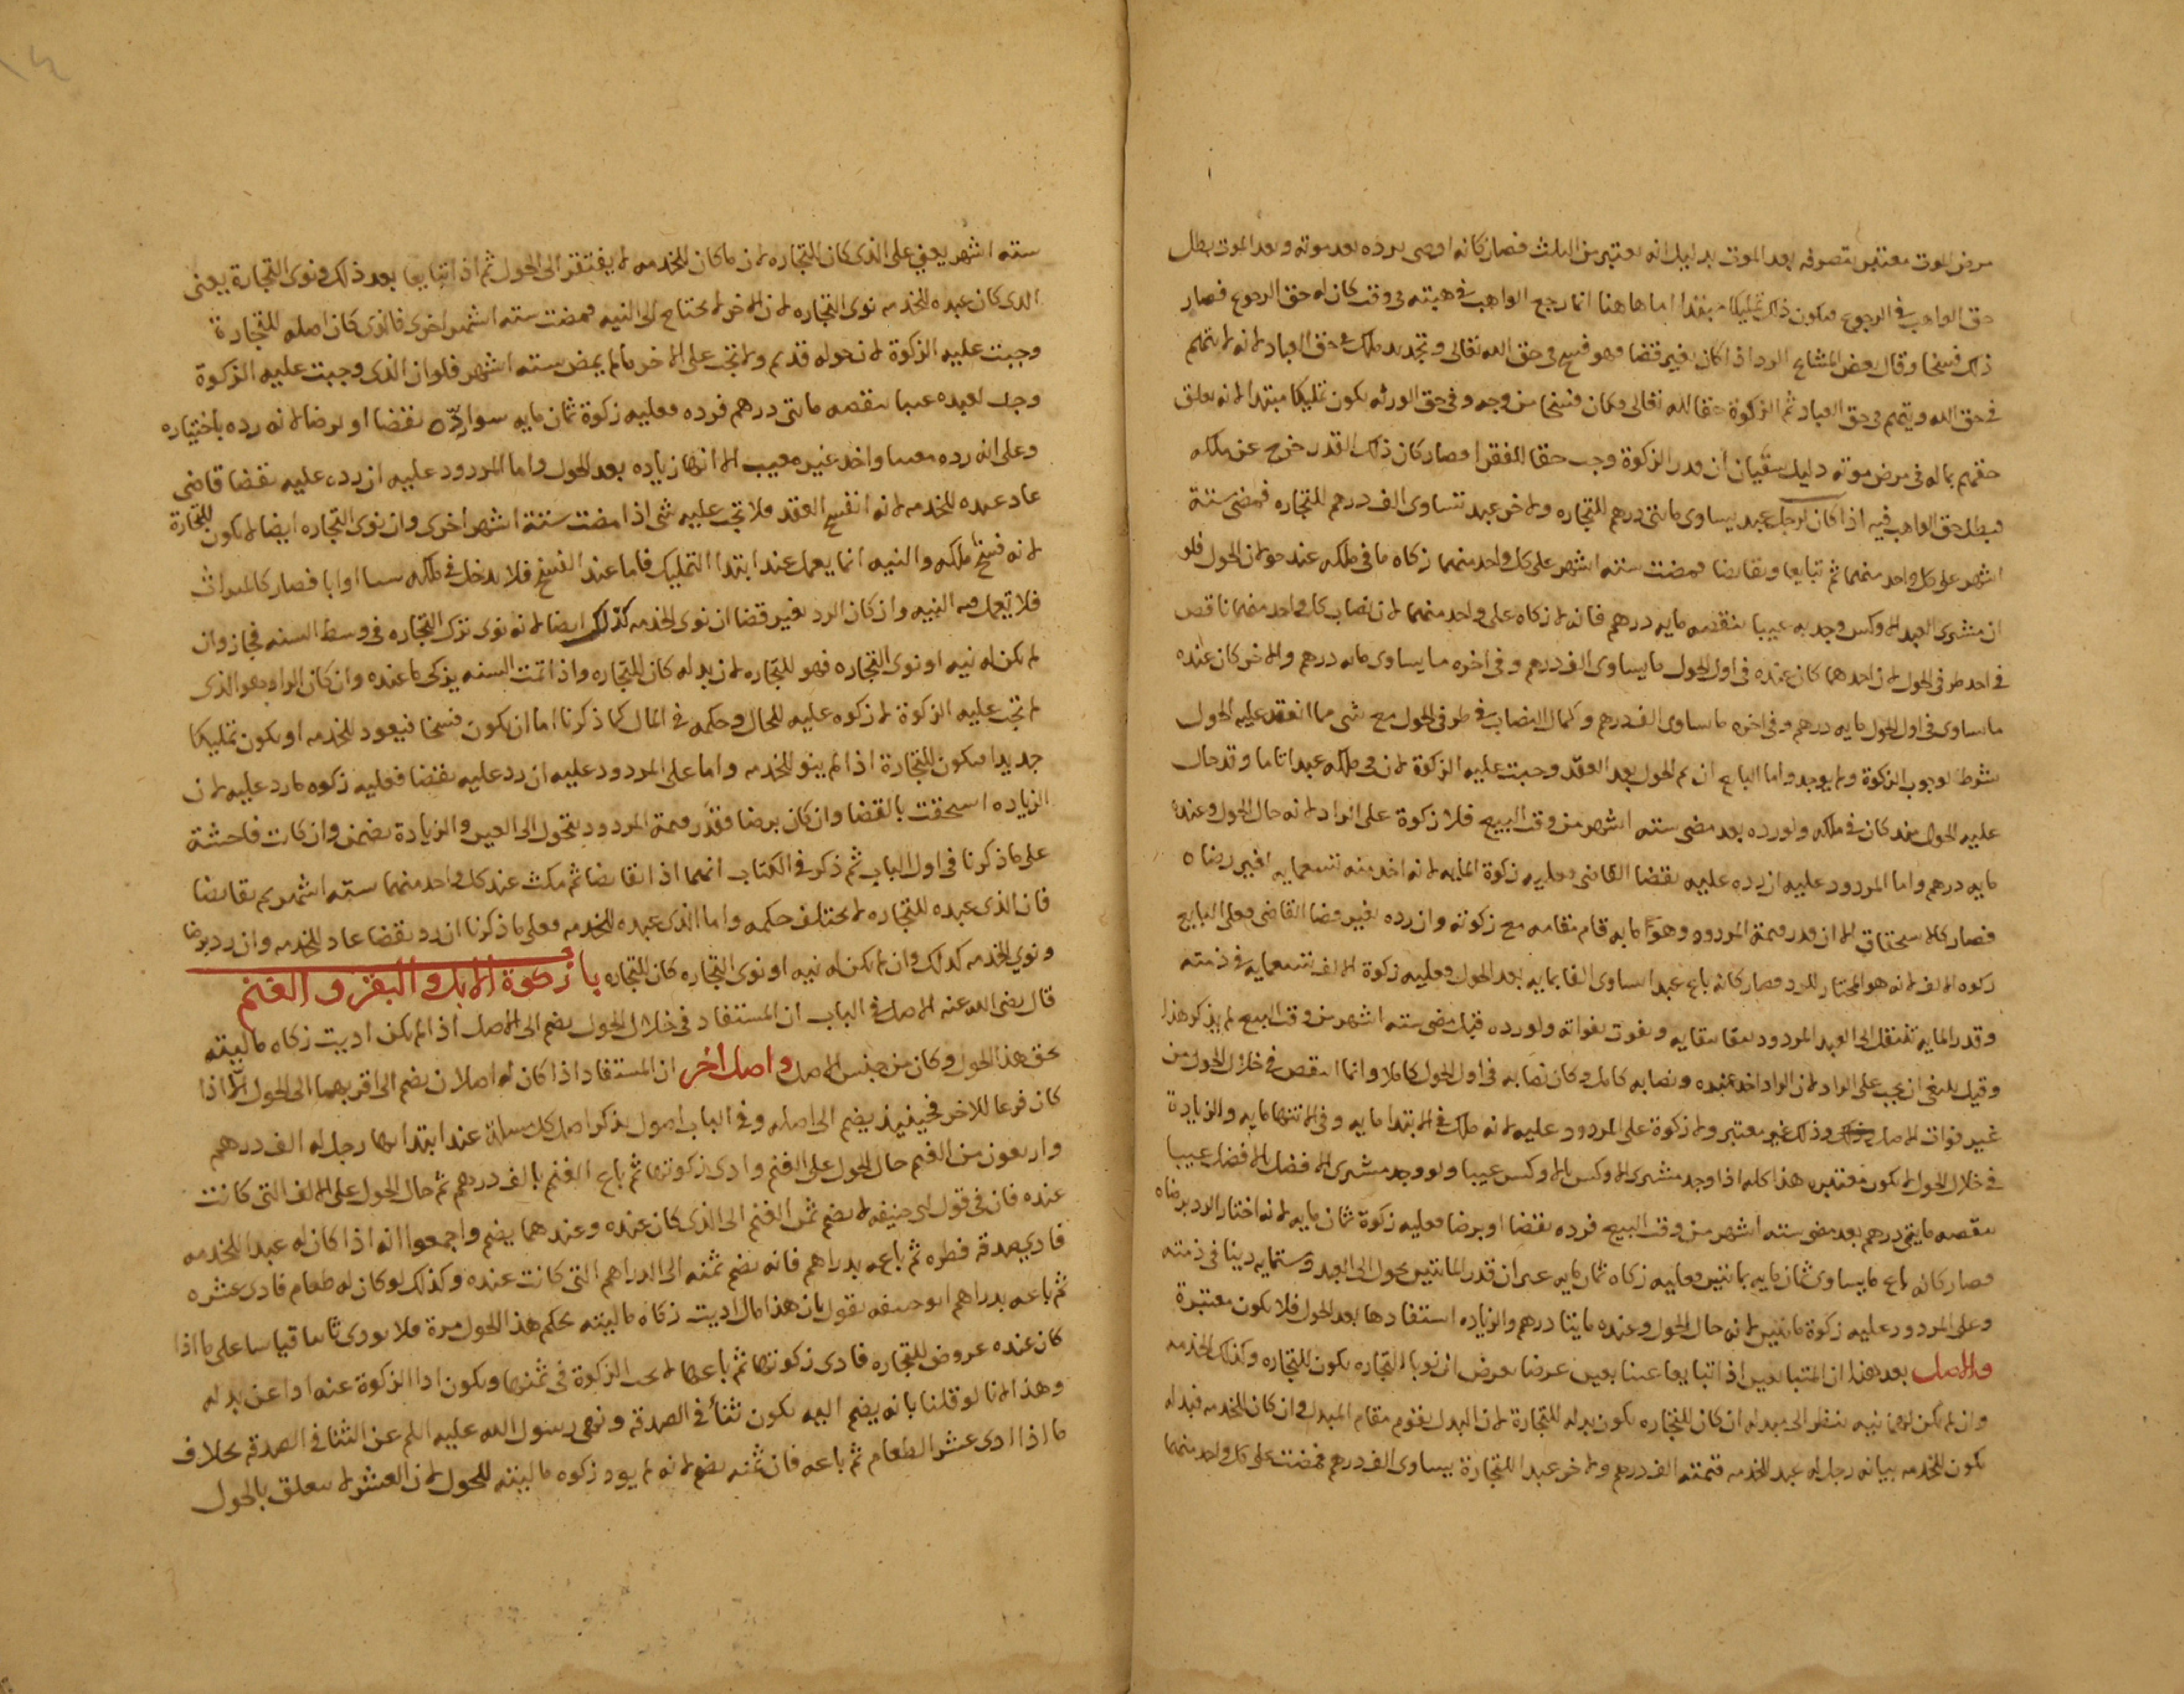 مرض الموت معتبر بتصرفه بعد الموت بدليل انه يعتبر من الثلث فصار كانه اوصى برده بعد موته وبعد الموت بطل
حق الواهب في الرجوع فيكون ذلك تمليكا مبتدا اما هاهنا انما رجع الواهب في هبته في وقت كان له حق الرجوع فصار
ذلك فسخا وقال بعض المشايخ الرد اذا كان بغير قضا فهو فسخ في حق الله تعالى وتجديد ملك في حق العباد لانه لا يتهم
في حق الله ويتهم في حق العباد ثم الزكوة حقا لله تعالى فكان فسخا من وجه وفي حق الورثه يكون تمليكا مبتدا لانه تعلق
حقهم بماله في مرض موته دليل ان قدر الزكوة وجب حقا للفقرا فصار كان ذلك القدر خرج عن ملكه
فبطل حق الواهب فيه اذا كان لرجل عبد يساوى مائتى درهم للتجاره ولاخر عبد تساوى الف درهم للتجاره فمضى ستة
اشهر على كل واحد منهما ثم تبايعا وتقابضا فمضت ستة اشهر على كل واحد منهما زكاه ما في ملكه عند حولان الحول فلو
ان مشترى العبد الاوكس وجد به عيبا ينقصه مايه درهم فانه لا زكاه على واحد منهما لان نصاب كل واحد منهما ناقص
في احد طرفى الحول لان احدهما كان عنده في اول الحول ما يساوى الف درهم وفى اخره ما يساوى مايه درهم والاخر كان عنده
ما يساوى في اول الحول مايه درهم وفى اخره ما يساوى الف درهم وكمال النصاب في طرفى الحول مع شى مما انعقد عليه الحول
شرط لوجوب الزكوة ولم يوجد واما البايع ان تم الحول بعد العقد وجبت عليه الزكوة لان في ملكه عبدا تاما وقد حال
عليه الحول منذ كان في ملكه ولو رده بعد مضى ستة اشهر من وقت البيع فلا زكوة على الراد لانه حال الحول وعنده
مايه درهم واما المردود عليه ان رده عليه بقضا القاضى فعليه زكوة المايه لانه اخذ منه تسعمايه بغير رضاه
فصار كالاستحقاق الا ان قدر قيمة المردود وهو مايه قام مقامه مع زكوته وان رده بغير قضا القاضى فعلى البايع
زكوه الالف لانه هو المختار للرد فصار كانه باع عبدا يساوى الفا بمايه بعد الحول فعليه زكوة الالف تسعمايه في ذمته
وقدر المايه تنتقل الى العبد المردود يبقا ببقايه ويفوت بفواته ولو رده قبل مضى ستة اشهر من وقت البيع لم يذكر هذا
وقيل ينبغى ان يجب على الراد لان الراد اخذ عبده ونصابه كامل وكان نصابه في اول الحول كاملا وانما انتقص في خلال الحول من
غير فوات الاصل وذلك غير معتبر ولا زكوة على المردود عليه لانه ملك في الابتدا مايه وفى الانتها مايه والزيادة
في خلال الحول لا يكون معتبره هذا كله اذا وجد مشترى الاوكس بالاوكس عيبا ولو وجد مشترى الافضل بالافضل عيبا
ينقصه مايتى درهم بعد مضى ستة اشهر من وقت البيع فرده بقضا او برضا فعليه زكوة ثمان مايه لانه اختار الرد برضاه
فصار كانه باع ما يساوى ثمان مايه بمائتين فعليه زكاه ثمان مايه غير ان قدر المائتين يحول الى العبد وستمايه دينا في ذمته
وعلى المردود عليه زكوة مائتين لانه حال الحول وعنده مايتا درهم والزياده استفادها بعد الحول فلا يكون معتبرة
والاصل بعد هذا ان المتبايعين اذا تبايعا عينا بعين عرضا بعرض ان نويا التجاره يكون للتجاره وكذلك الخدمه
وان لم يكن لهما نيه ينظر الى مبدله ان كان للتجاره يكون بدله للتجارة لان البدل يقوم مقام المبدل وان كان للخدمه فبدله
يكون للخدمه بيانه رجل له عبد للخدمه قيمته الف درهم ولاخر عبدا للتجارة يساوى الف درهم فمضت على كل واحد منهما
ستة اشهر يعنى على الذى كان للتجاره لان ما كان للخدمه لا يفتقر الى الحول ثم اذا تبايعا بعد ذلك ونوى التجارة يعنى
الذى كان عبده للخدمه نوى التجاره لان الاخر لا يحتاج الى النيه فمضت ستة اشهر اخرى فالذى كان اصله للتجارة
وجبت عليه الزكوة لان حوله قديم ولا تجب على الاخر ما لم يمض ستة اشهر فلو ان الذى وجبت عليه الزكوة
وجد بعبده عيبا ينقصه مائتى درهم فرده فعليه زكوة ثمان مايه سوا رده بقضا او برضا لانه رده باختياره
وعلى انه رده معيبا واخذ غير معيب الا انها زياده بعد الحول واما المردود عليه ان رد عليه بقضا قاضى
عاد عبده للخدمه لانه انفسخ العقد فلا تجب عليه شى اذا مضت ستة اشهر اخرى وان نوى التجاره ايضا لا يكون للتجارة
لانه فسخ ملكه والنيه انما يعمل عند ابتدا التمليك فاما عند الفسخ فلا يدخل في ملكه شيا او ابا فصار كالميراث
فلا تعمل فيه النيه وان كان الرد بغير قضا ان نوى الخدمه كذلك ايضا لانه نوى ترك التجاره في وسط السنه فجاز وان
لم يكن له نيه او نوى التجاره فهو للتجاره لان بدله كان للتجاره واذا تمت السنه يزكى ما عنده وان كان الراد هو الذى
لم تجب عليه الزكوة لا زكوه عليه للحال وحكمه في المال كما ذكرنا اما ان يكون فسخا فيعود للخدمه او يكون تمليكا
جديدا فيكون للتجارة اذا لم ينو للخدمه واما على المردود عليه ان رد عليه بقضا فعليه زكوه ما رد عليه لان
الزياده استحقت بالقضا وان كان برضا فقدر قيمة المردود يتحول الى العين والزيادة يضمن وان كانت فاحشة
على ما ذكرنا في اول الباب ثم ذكر في الكتاب انهما اذا تقابضا ثم مكث عند كل واحد منهما ستة اشهر ثم تقابضا
فان الذى عبده للتجاره لا يختلف حكمه واما الذى عبده للخدمه فعلى ما ذكرنا ان رد بقضا عاد للخدمه وان رد برضا
ونوى للخدمه كذلك وان لم يكن له نيه او نوى التجاره كان للتجاره باب زكوة الابل والبقر والغنم
قال رضى الله عنه الاصل في الباب ان المستفاد في خلال الحول يضم الى الاصل اذا لم يكن اديت زكاه ماليته
بحق هذا الحول وكان من جنس الاصل واصل اخر ان المستفاد اذا كان له اصلان يضم الى اقربهما الى الحول الا اذا
كان فرعا للاخر فحينيذ يضم الى اصله وفى الباب اصول يذكر اصل كل مسلة عند ابتدائها رجل له الف درهم
واربعون من الغنم حال الحول على الغنم وادى زكوتها ثم باع الغنم بالف درهم ثم حال الحول على الالف التى كانت
عنده فان في قول ابى حنيفه لا يضم ثمن الغنم الى الذى كان عنده وعندهما يضم واجمعوا انه اذا كان له عبدا للخدمه
فادى صدقة فطره ثم باعه بدراهم فانه يضم ثمنه الى الدراهم التى كانت عنده وكذلك لو كان له طعام فادى عشره
ثم باعه بدراهم ابو حنيفه يقول بان هذا مال اديت زكاه ماليته بحكم هذا الحول مرة فلا يودى ثانيا قياسا على ما اذا
كان عنده عروض للتجاره فادى زكوتها ثم باعها لا يجب الزكوة في ثمنها ويكون ادا الزكوة عنه ادا عن بدله
وهذا لانا لو قلنا بانه يضم اليه يكون ثنأ في الصدقه ونهى رسول الله عليه السلم عن الثنا في الصدقه بخلاف
ما اذا ادى عشر الطعام ثم باعه فان ثمنه يضم لانه لم يود زكوه ماليته للحول لان العشر لا يتعلق بالحول